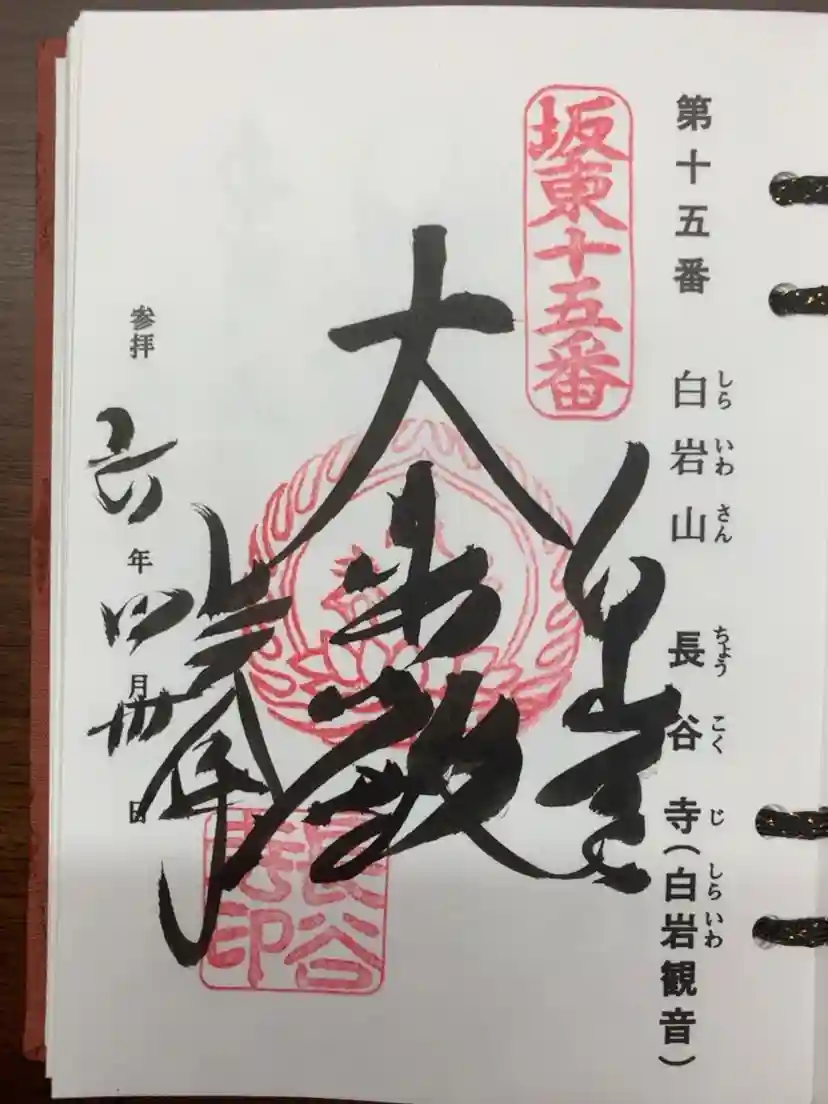 第十五番 白岩山 長谷寺(白岩観音)
しら いわ さん ちょう こく じ しら いわ
坂東十五番
大悲殿
長谷寺印
参拝 六年四月 日